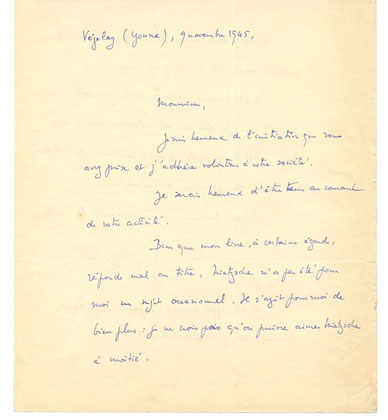 Vézelay (Yonne), 9 novembre 1945,
Monsieur,
Je suis heureux de l'initiative que vous
avez prise et j'adhère volontiers à votre société.
Je serais heureux d'être tenu au courant
de votre activité.
Bien que mon livre, à certains égards,
réponde mal au titre, Nietzsche n'a pas été pour
moi un sujet occasionnel. Il s'agit pour moi de
bien plus : je ne vois pas qu'on puisse aimer Nietzsche
à moitié.